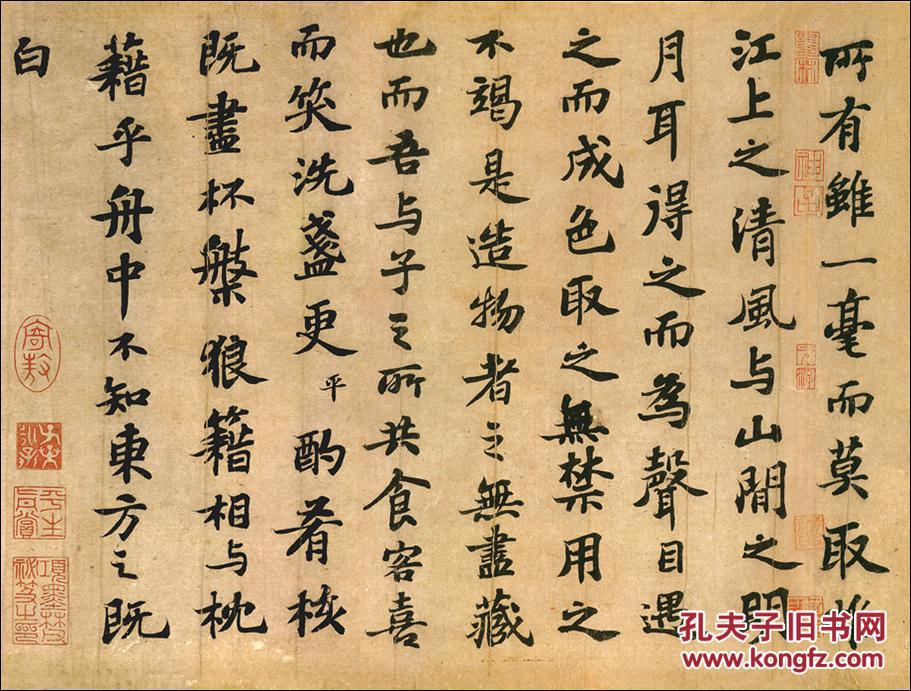 所有雖一毫而莫取
江上之清風与山間之明
月耳得之而為聲目遇
之而成色取之無禁用之
不竭是造物者之無盡藏
也而吾与子之所共食客喜
而笑洗盞更平酌肴核
既盡杯槃狼籍相与枕
藉乎舟中不知東方之既
白
神品
平生真賞
項墨林父秘笈之印
孔夫子旧书网
www.kongfz.com